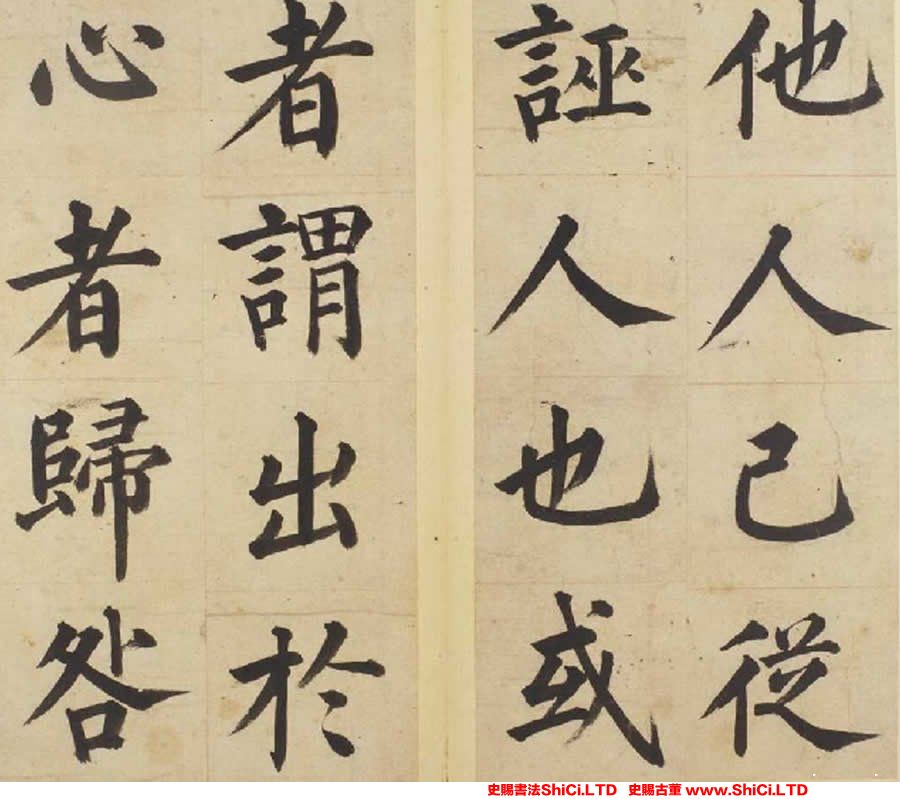 他人己從
誣人也或
者謂出於
心者歸咎
史賜書法ShiCi.LTD 史賜古董 www.ShiCi.LTD